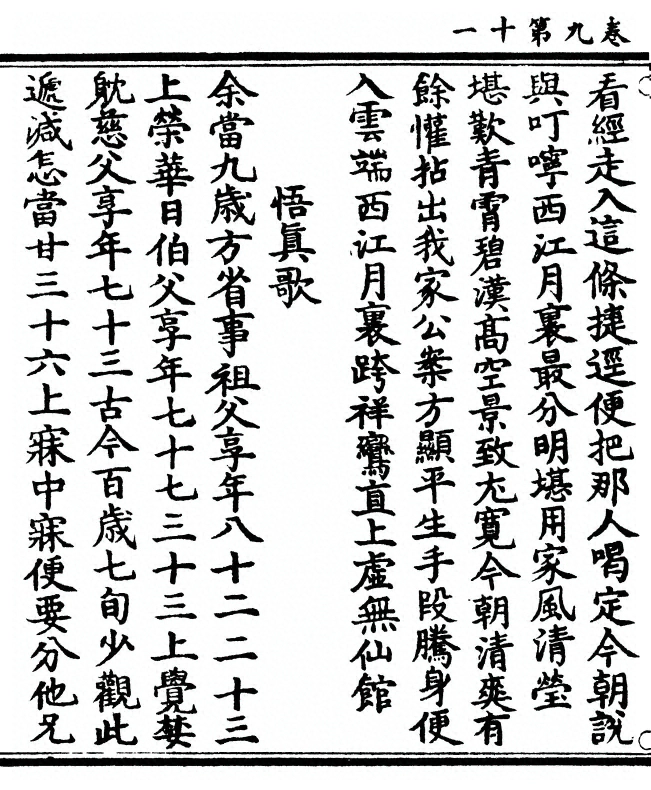 卷九第十一
看經走入這條捷逕便把那人喝定今朝說
與叮嚀西江月裏最分明堪用家風清瑩
堪歎青霄碧漢髙空景致尤寬今朝清爽有
餘懽拈出我家公案方顯平生手段騰身便
入雲端西江月裏跨祥鸞直上虛無仙館
悟眞歌
余當九歳方省事祖父享年八十二二十三
上榮華日伯父享年七十七三十三上覺婪
躭慈父享年七十三古今百歳七旬少觀此
遞減怎當甘三十六上寐中寐便要分他兄